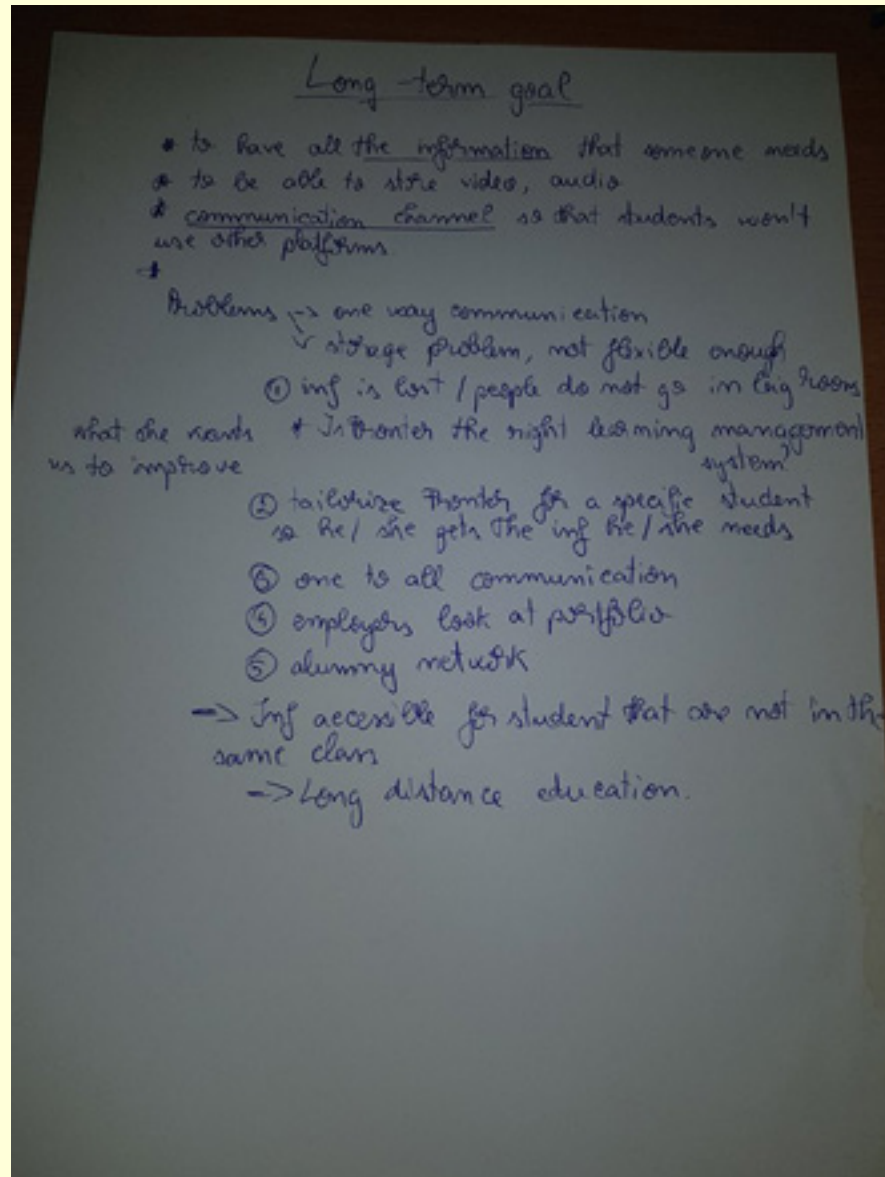 Long-term goal
* to have all the information that someone needs
* to be able to store video, audio
* communication channel so that students won't
use other platforms.
*
Problems -> one way communication
storage problem, not flexible enough
① inf is lost / people do not go in big rooms
what she wants * Is Fronter the right learning management
us to improve system?
② tailorize Fronter for a specific student
so he/she gets the inf he/she needs
③ one to all communication
④ employers look at portfolio
⑤ alumny network
-> Inf accessible for student that are not in the
same class
-> Long distance education.